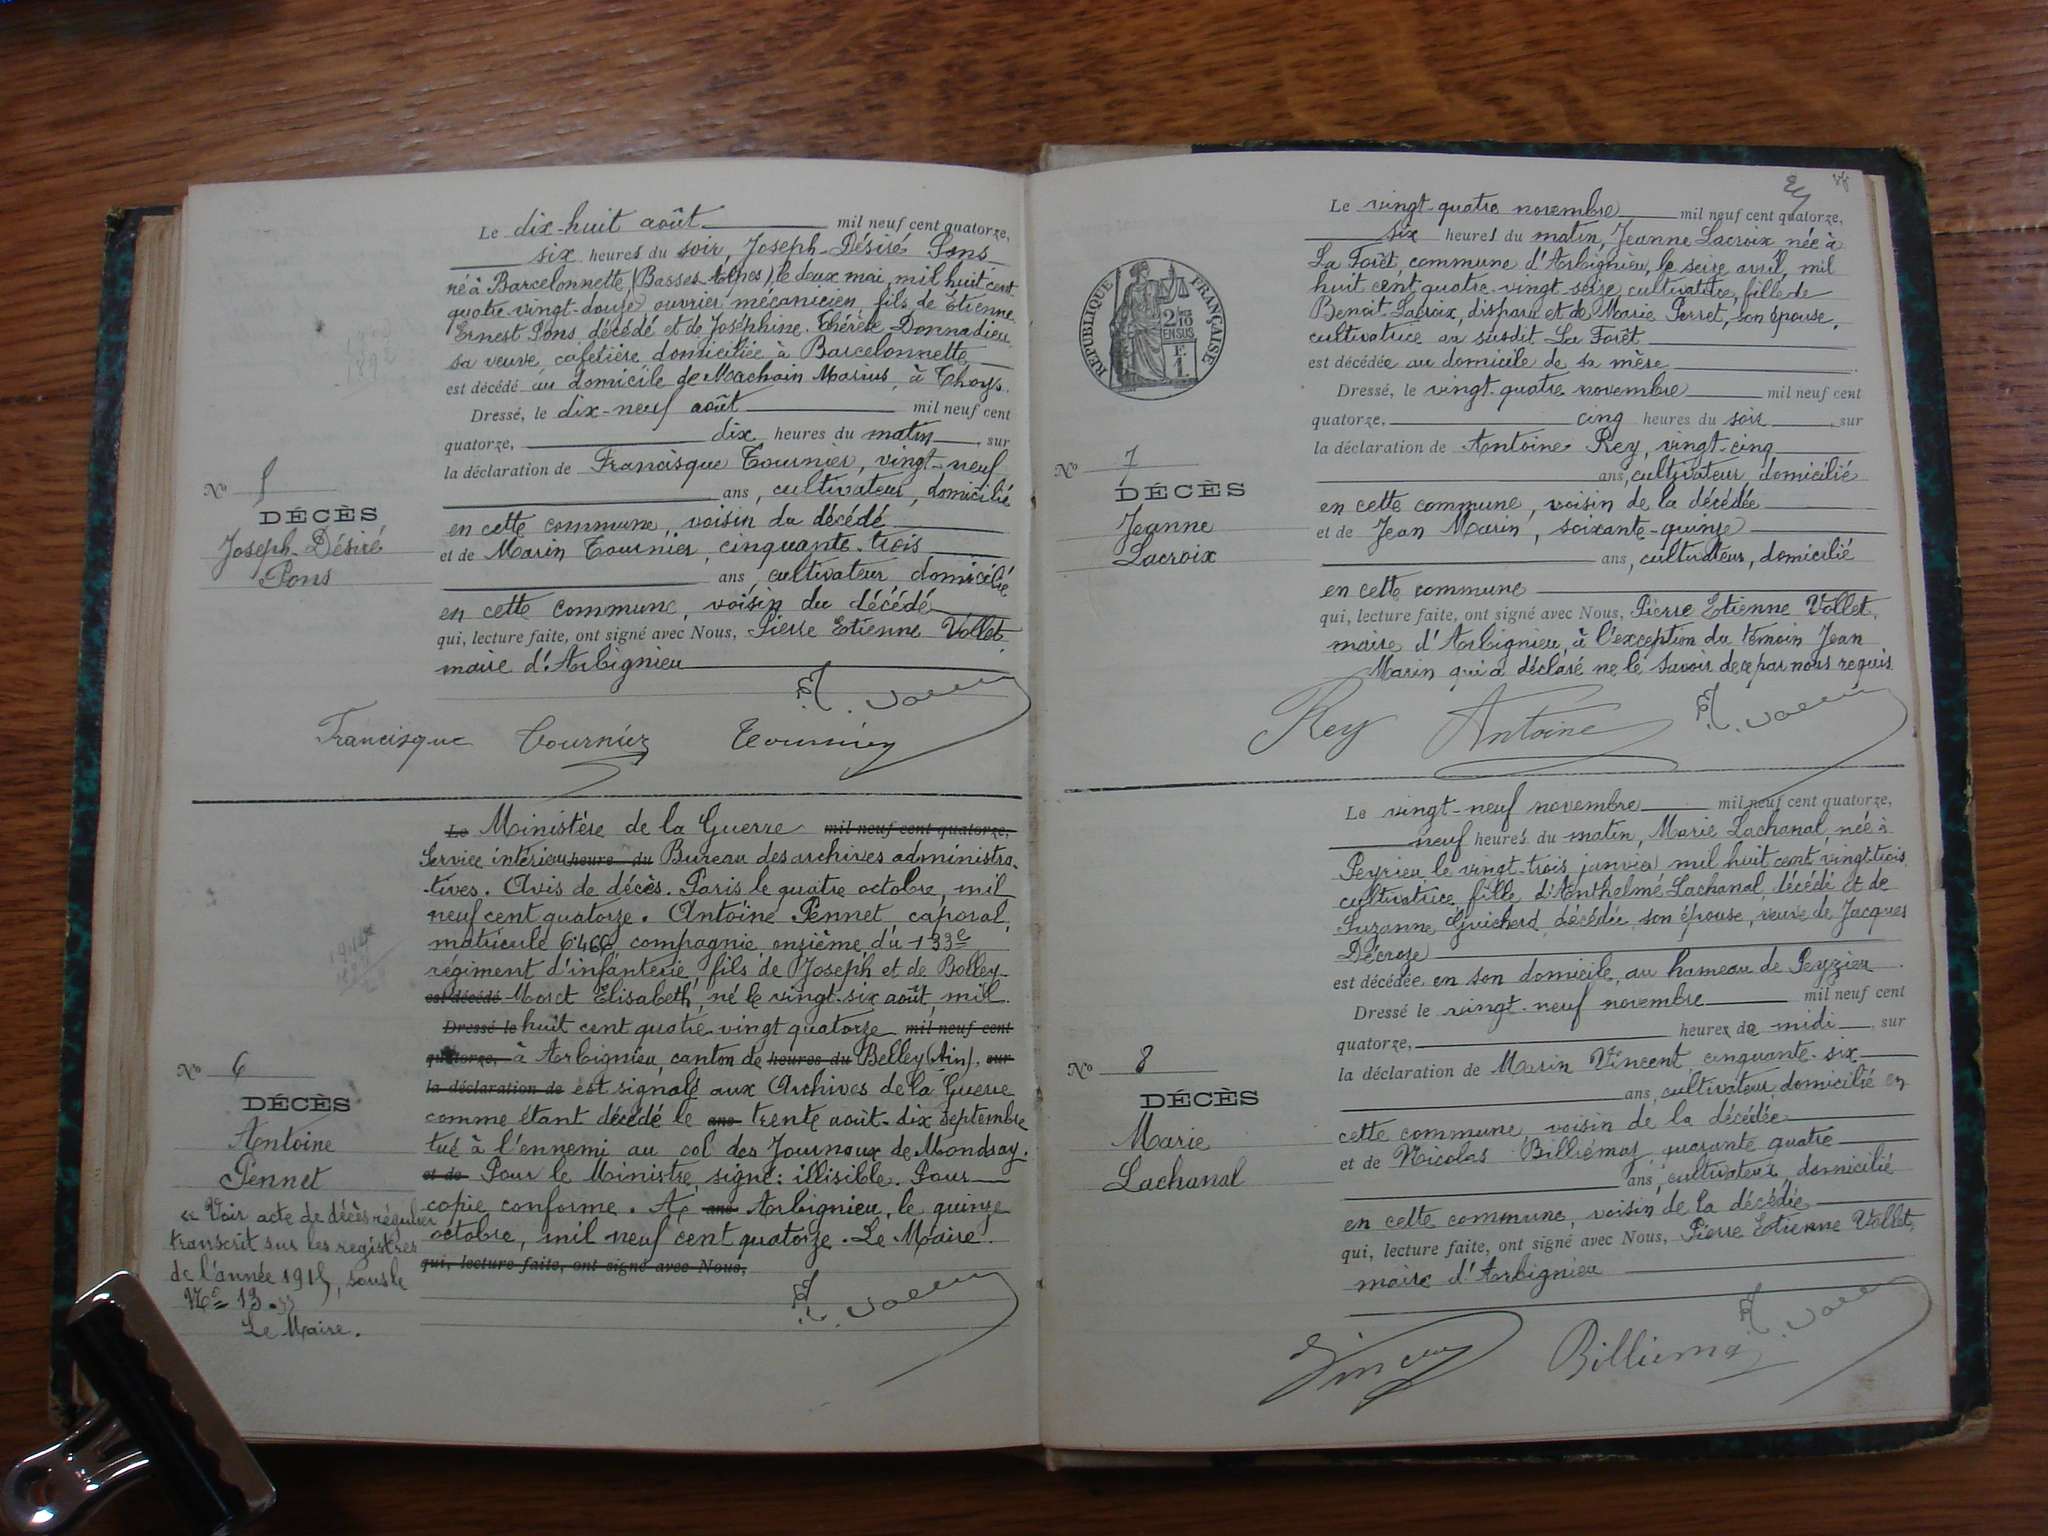 Le dix-huit août mil neuf cent quatorze,
six heures du soir, Joseph-Désiré Pons
né à Barcelonnette, (Basses-Alpes), le deux mai, mil huit cent
quatre-vingt-douze ouvrier mécanicien, fils de Etienne
Ernest Pons décédé et de Joséphine-Thérèse Donnadieu
sa veuve, cafetière domiciliée à Barcelonnette
est décédé au domicile de Marius, à Thoys.
Dressé, le dix-neuf août mil neuf cent
quatorze, dix heures du matin, sur
la déclaration de Francisque Tournier, vingt-neuf
ans, cultivateur, domicilié
en cette commune, voisin du décédé
et de Marin Tournier, cinquante-trois
ans, cultivateur, domicilié
en cette commune, voisin du décédé
qui, lecture faite, ont signé avec Nous, Pierre Etienne Vollet
maire d'Arbignieu
Francisque Tournier Tournier
No 5
DÉCÈS
Joseph-Désiré
Pons
Le Ministère de la Guerre mil neuf cent quatorze,
Service intérieur heure du Bureau des archives administra-
-tives. Avis de décès. Paris le quatre octobre, mil
neuf cent quatorze. Antoine Pennet, caporal,
matricule compagnie onzième du 133e
régiment d'infanterie, fils de Joseph et de Bolley-
est décédé Moret Elisabeth, né le vingt-six août, mil
Dressé le huit cent quatre vingt quatorze mil neuf cent
quatorze, à Arbignieu, canton de heures du Belley (Ain), sur
la déclaration de est signalé aux Archives de la Guerre
comme étant décédé le ans trente août-dix septembre
tué à l'ennemi au col des Journaux de Mandray.
et de Pour le Ministre, signé: illisible. Pour
copie conforme. A ans Arbignieu, le quinze
octobre, mil neuf cent quatorze. Le Maire.
qui, lecture faite, ont signé avec Nous,
No 6
DÉCÈS
Antoine
Pennet
« Voir acte de décès régulier
transcrit sur les registres
de l'année 1915, sous le
No 13. »
Le Maire.
24
RÉPUBLIQUE FRANÇAISE
2/10 EN SUS
F.
1.
Le vingt-quatre novembre mil neuf cent quatorze,
six heures du matin, Jeanne Lacroix née à
La Forêt, commune d'Arbignieu, le seize avril, mil
huit cent quatre-vingt-seize, cultivatrice, fille de
Benoit Lacroix, disparu et de Marie Perret, son épouse,
cultivatrice au susdit La Forêt
est décédée au domicile de sa mère
Dressé, le vingt-quatre novembre mil neuf cent
quatorze, cinq heures du soir, sur
la déclaration de Antoine Rey, vingt-cinq
ans, cultivateur, domicilié
en cette commune, voisin de la décédée
et de Jean Marin, soixante-quinze
ans, cultivateur, domicilié
en cette commune
qui, lecture faite, ont signé avec Nous, Pierre Etienne Vollet,
maire d'Arbignieu, à l'exception du témoin Jean
Marin qui a déclaré ne le savoir de ce par nous requis
Rey Antoine
No 7
DÉCÈS
Jeanne
Lacroix
Le vingt-neuf novembre mil neuf cent quatorze,
neuf heures du matin, Marie Lachanal, née à
Peyrieu le vingt-trois janvier mil huit cent vingt-trois
cultivatrice, fille d'Anthelme Lachanal, décédé et de
Suzanne Guicherd, décédée, son épouse, veuve de Jacques
Décroze
est décédée en son domicile, au hameau de Peyzieu
Dressé le vingt-neuf novembre mil neuf cent
quatorze, heures de midi, sur
la déclaration de Marin Vincent, cinquante-six
ans, cultivateur, domicilié en
cette commune, voisin de la décédée
et de Nicolas Billiémaz, quarante quatre
ans, cultivateur, domicilié
en cette commune, voisin de la décédée
qui, lecture faite, ont signé avec Nous, Pierre Etienne Vollet,
maire d'Arbignieu
Vincent Billiema
No 8
DÉCÈS
Marie
Lachanal